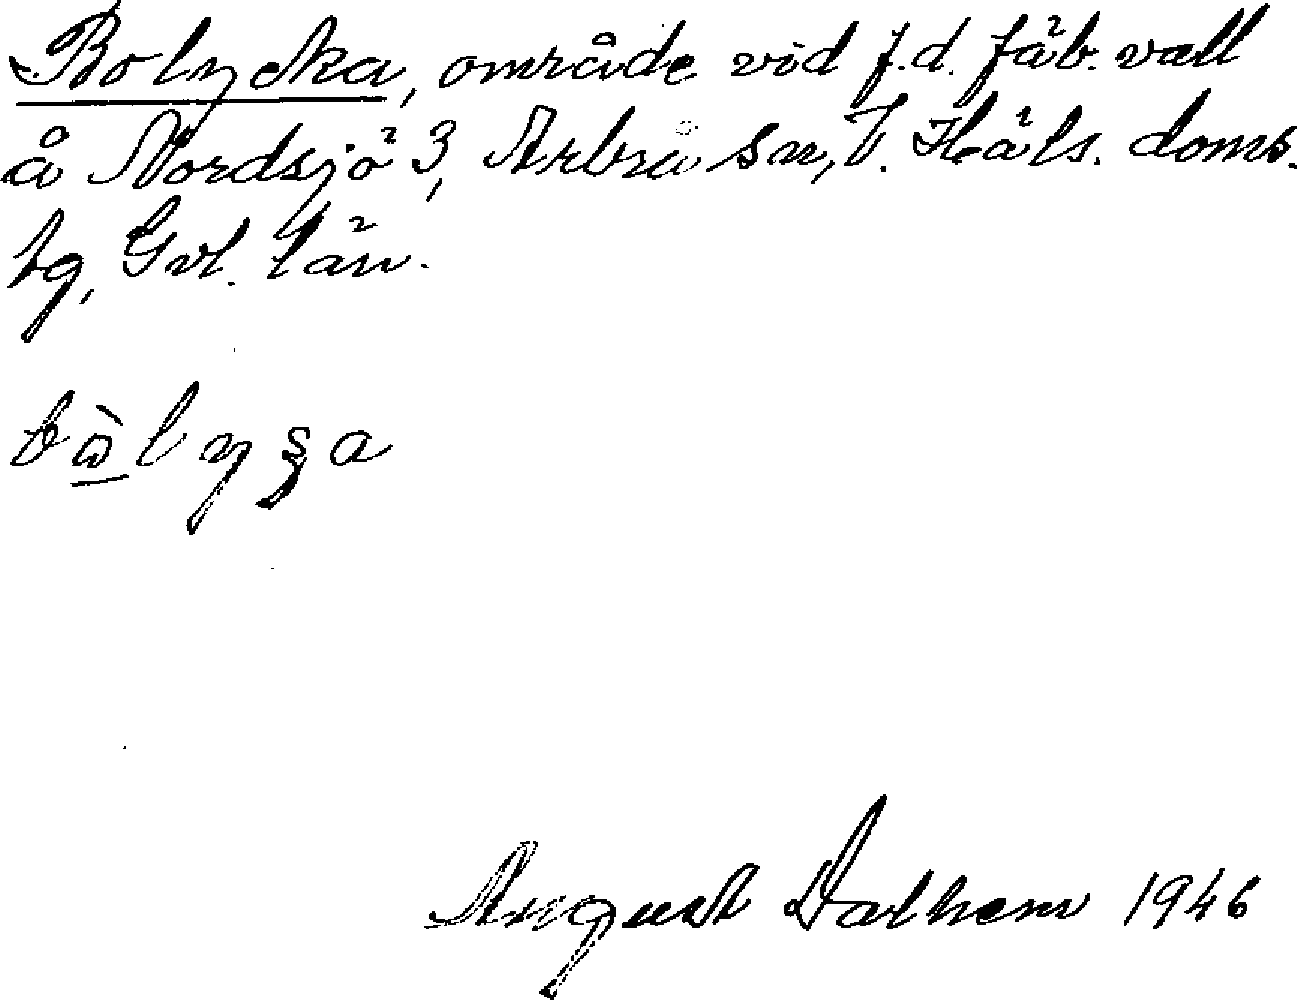 Bolycka, område vid f.d. fäb. vall
å Nordsjö 3, Arbrå sn, V. Häls. doms.
tg, Gvl. län.
August Dalhem 1946